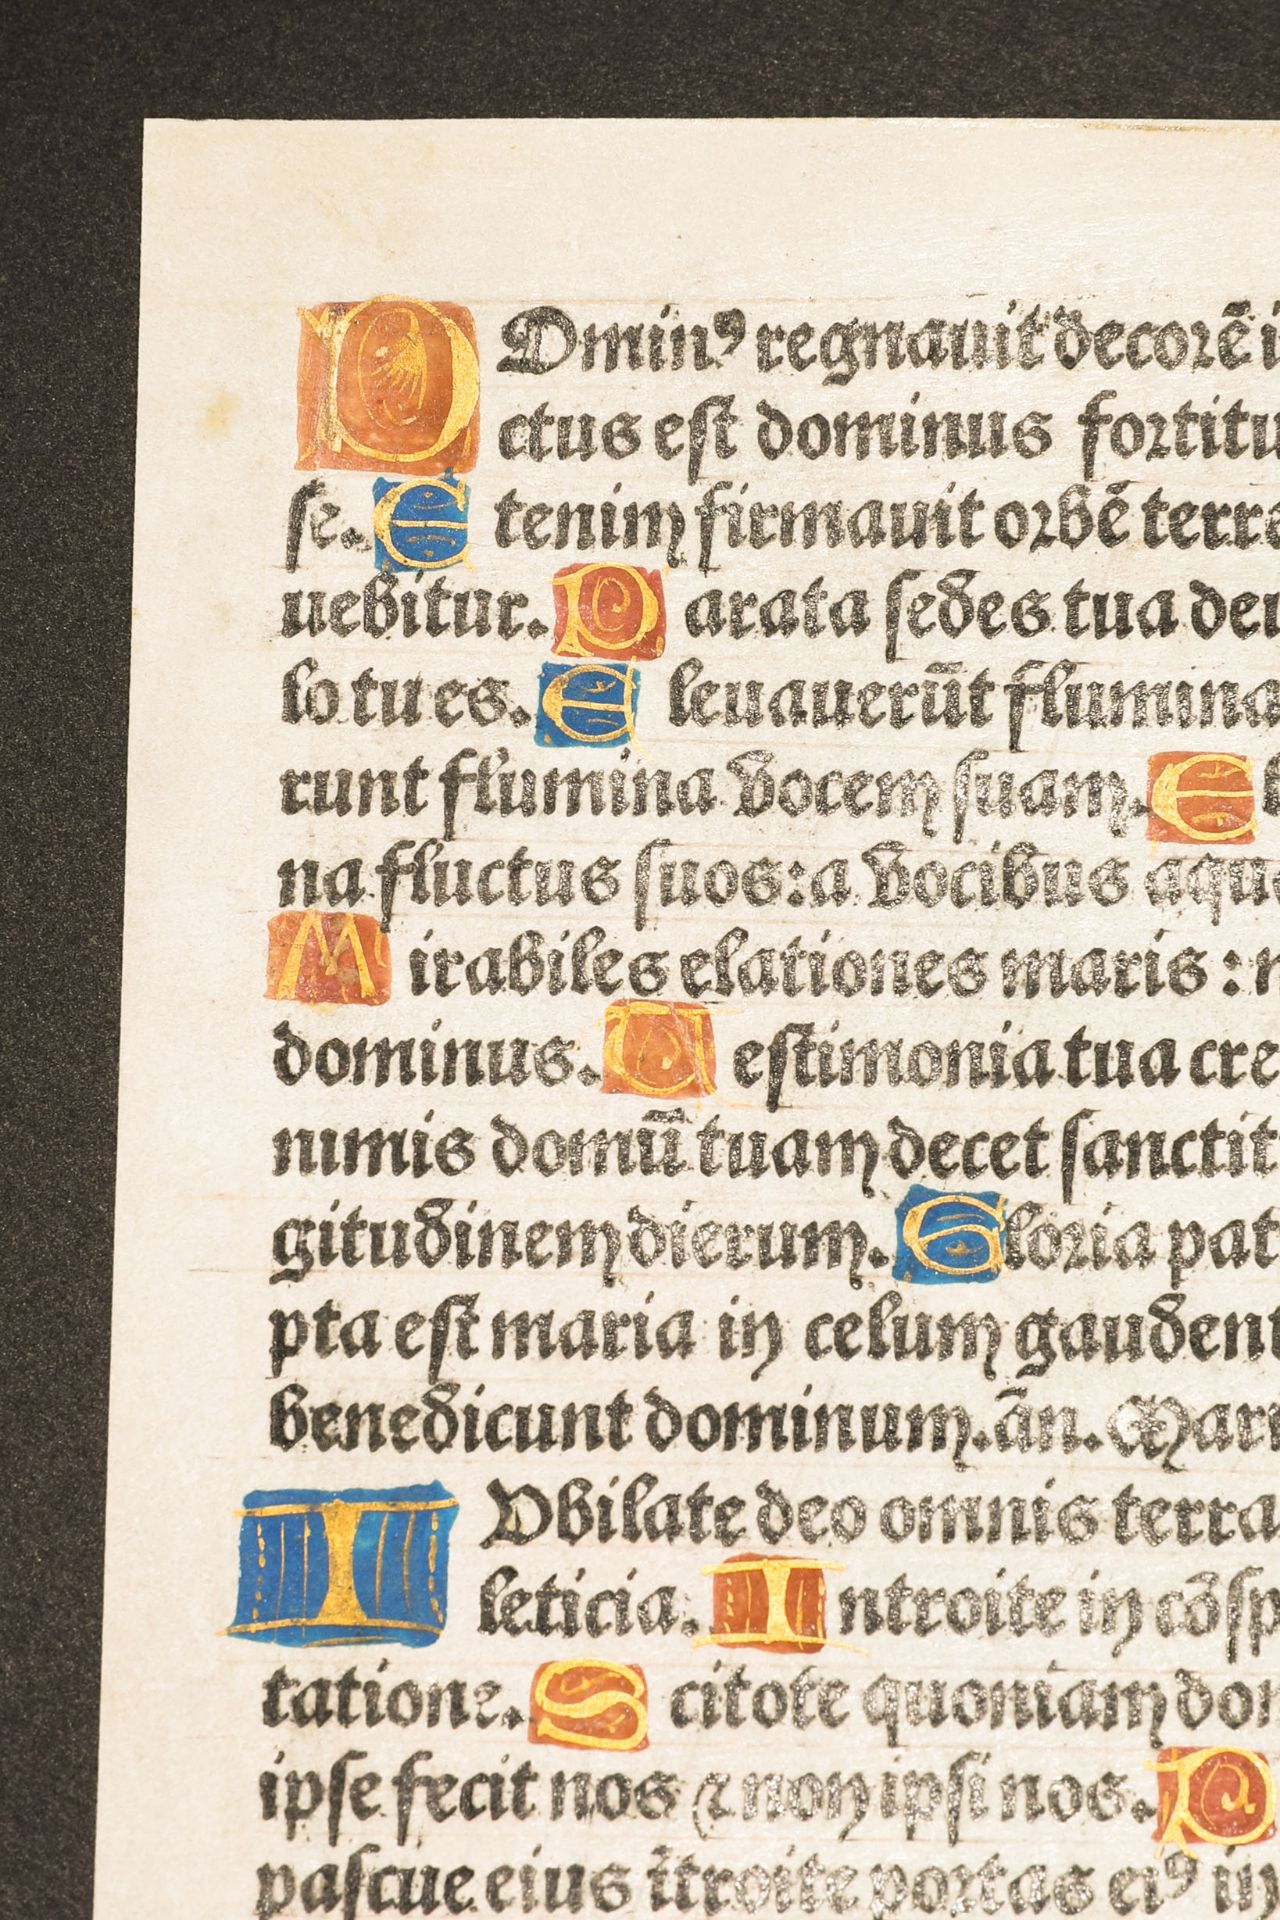 DOminꝰ regnauit decorē i
ctus est dominus fortitu
se. E tenim firmauit orbē terra
uebitur. P arata sedes tua deu
lo tu es. E leuauerūt flumina
runt flumina vocem suam. E l
na fluctus suos: a vocibus aqua
M irabiles elationes maris: m
dominus. T estimonia tua cre
nimis domū tuam decet sanctit
gitudinem dierum. Gloria pat
pta est maria in celum gaudent
benedicunt dominum. ān. Mari
IUbilate deo omnis terra
leticia. Introite in cōsp
tatione. S citote quoniam dom
ipse fecit nos ⁊ non ipsi nos. P
pascue eius ītroite portas eiꝰ in